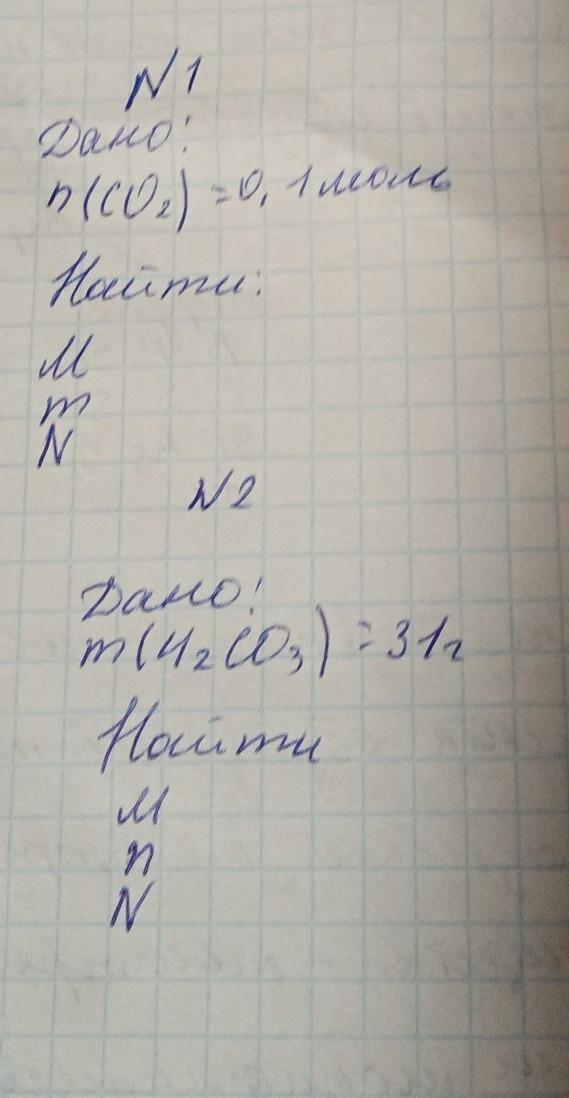 N1
Дано:
n(CO₂) = 0,1 моль
Найти:
M
m
N
N2
Дано:
m(H₂CO₃) = 31г
Найти
M
n
N